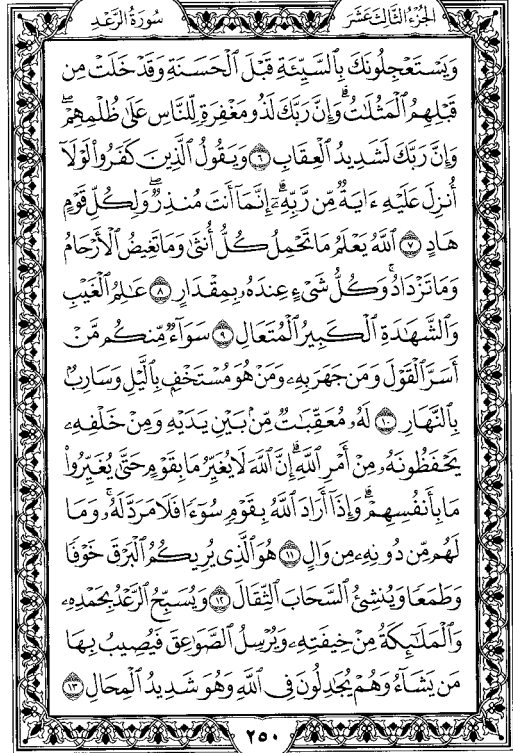 الجُزْءُ الثَّالِثَ عَشَرَ
سُورَةُ الرَّعْدِ
وَيَسْتَعْجِلُونَكَ بِٱلسَّيِّئَةِ قَبْلَ ٱلْحَسَنَةِ وَقَدْ خَلَتْ مِن
قَبْلِهِمُ ٱلْمَثُلَٰتُۗ وَإِنَّ رَبَّكَ لَذُو مَغْفِرَةٍ لِّلنَّاسِ عَلَىٰ ظُلْمِهِمْۖ
وَإِنَّ رَبَّكَ لَشَدِيدُ ٱلْعِقَابِ ٦ وَيَقُولُ ٱلَّذِينَ كَفَرُوا۟ لَوْلَآ
أُنزِلَ عَلَيْهِ ءَايَةٌ مِّن رَّبِّهِۦٓۗ إِنَّمَآ أَنتَ مُنذِرٌۖ وَلِكُلِّ قَوْمٍ
هَادٍ ٧ ٱللَّهُ يَعْلَمُ مَا تَحْمِلُ كُلُّ أُنثَىٰ وَمَا تَغِيضُ ٱلْأَرْحَامُ
وَمَا تَزْدَادُۖ وَكُلُّ شَىْءٍ عِندَهُۥ بِمِقْدَارٍ ٨ عَٰلِمُ ٱلْغَيْبِ
وَٱلشَّهَٰدَةِ ٱلْكَبِيرُ ٱلْمُتَعَالِ ٩ سَوَآءٌ مِّنكُم مَّنْ
أَسَرَّ ٱلْقَوْلَ وَمَن جَهَرَ بِهِۦ وَمَنْ هُوَ مُسْتَخْفٍۭ بِٱلَّيْلِ وَسَارِبٌۢ
بِٱلنَّهَارِ ١٠ لَهُۥ مُعَقِّبَٰتٌ مِّنۢ بَيْنِ يَدَيْهِ وَمِنْ خَلْفِهِۦ
يَحْفَظُونَهُۥ مِنْ أَمْرِ ٱللَّهِۗ إِنَّ ٱللَّهَ لَا يُغَيِّرُ مَا بِقَوْمٍ حَتَّىٰ يُغَيِّرُوا۟
مَا بِأَنفُسِهِمْۗ وَإِذَآ أَرَادَ ٱللَّهُ بِقَوْمٍ سُوٓءًا فَلَا مَرَدَّ لَهُۥۚ وَمَا
لَهُم مِّن دُونِهِۦ مِن وَالٍ ١١ هُوَ ٱلَّذِى يُرِيكُمُ ٱلْبَرْقَ خَوْفًا
وَطَمَعًا وَيُنشِئُ ٱلسَّحَابَ ٱلثِّقَالَ ١٢ وَيُسَبِّحُ ٱلرَّعْدُ بِحَمْدِهِۦ
وَٱلْمَلَٰٓئِكَةُ مِنْ خِيفَتِهِۦ وَيُرْسِلُ ٱلصَّوَٰعِقَ فَيُصِيبُ بِهَا
مَن يَشَآءُ وَهُمْ يُجَٰدِلُونَ فِى ٱللَّهِ وَهُوَ شَدِيدُ ٱلْمِحَالِ ١٣
٢٥٠